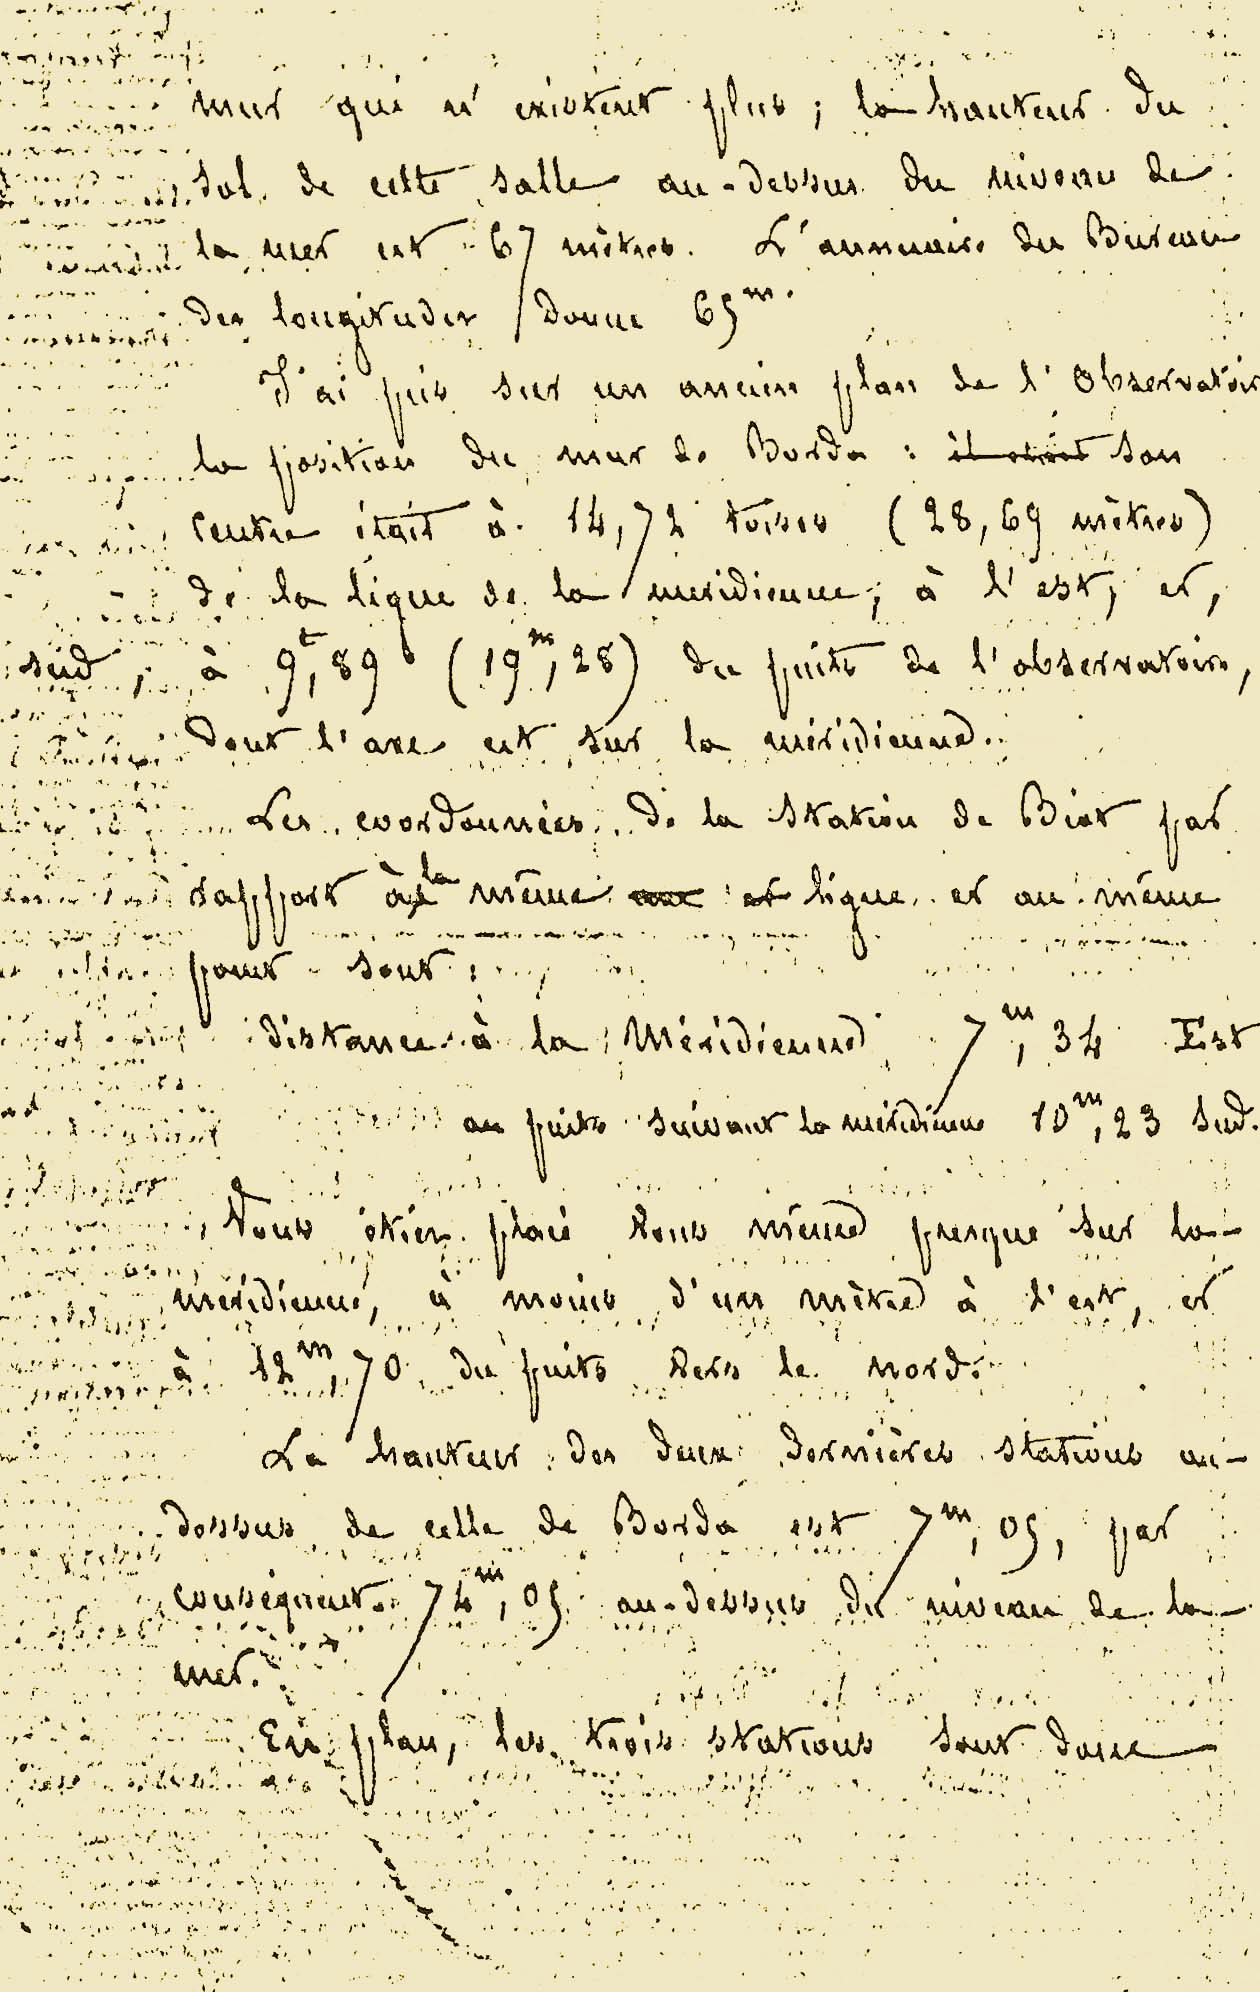 mur qui n'existent plus ; la hauteur du
sol de cette salle au-dessus du niveau de
la mer est 67 mètres. L'annuaire du Bureau
des longitudes donne 65m.
J'ai pris sur un ancien plan de l'Observatoire
la position du mur de Borda : il était son
centre était à 14,72 toises (28,69 mètres)
de la ligne de la méridienne, à l'est, et,
sud, à 9t,89 (19m,28) du puits de l'observatoire,
dont l'axe est sur la méridienne.
Les coordonnées de la station de Biot par
rapport à la même ligne et au même
point sont :
distance à la Méridienne 7m,34 Est
au puits suivant la méridienne 10m,23 Sud.
Vous étiez placé vous même presque sur la
méridienne, à moins d'un mètre à l'est, et
à 12m,70 du puits vers le nord.
La hauteur des deux dernières stations au-
dessus de celle de Borda est 7m,05, par
conséquent 74m,05 au-dessus du niveau de la
mer.
En plan, les trois stations sont donc